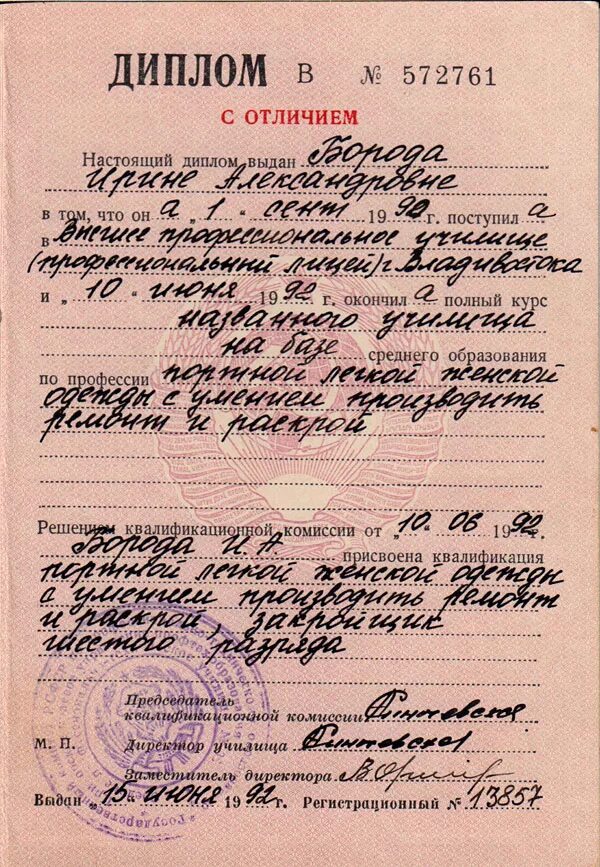 ДИПЛОМ В № 572761
С ОТЛИЧИЕМ
Настоящий диплом выдан Борода
Ирине Александровне
в том, что он а „ 1 “ сент 1992 г. поступил а
в Высшее профессиональное училище
(профессиональный лицей) г. Владивостока
и „ 10 “ июня 1992 г. окончил а полный курс
названного училища
на базе среднего образования
по профессии портной легкой женской
одежды с умением производить
ремонт и раскрой
Решением квалификационной комиссии от „ 10. “ 06 1992.
Борода И. А присвоена квалификация
портной легкой женской одежды
с умением производить ремонт
и раскрой, закройщик
шестого разряда
Председатель
квалификационной комиссии
М. П. Директор училища
Заместитель директора
Выдан „ 15 “ июня 1992г. Регистрационный № 13857